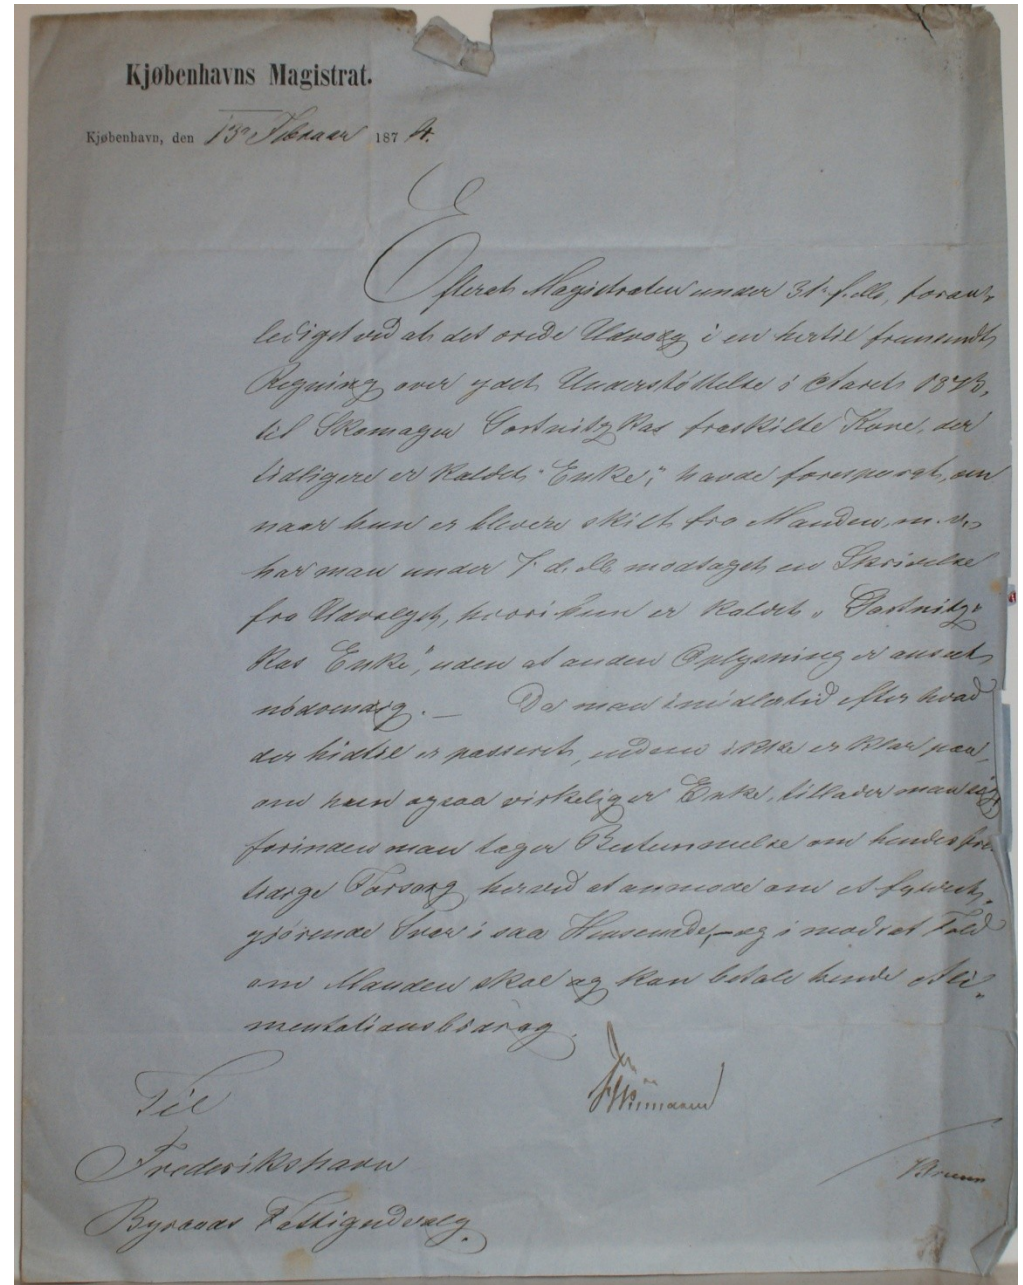 Kjøbenhavns Magistrat.
Kjøbenhavn, den 13de Februar 1874.
Efterat Magistraten under 31' f. M., foran-
lediget ved at det ærede Udvalg i en hertil fremsendt
Regning over ydet Understøttelse i Aaret 1873,
til Skomager Gortnitzkas fraskilte Kone, der
tidligere er kaldet "Enke", havde forespurgt, om
naar hun er bleven skilt fra Manden, m. v.,
har man under 7' d. M. modtaget en Skrivelse
fra Udvalget, hvori hun er kaldet "Gortnitz-
kas Enke", uden at anden Oplysning er anseet
nødvendig. — Da man imidlertid efter hvad
der hidtil er passeret, endnu ikke er klar paa,
om hun ogsaa virkelig er Enke, tillader man sig,
forinden man tager Bestemmelse om hendes frem-
tidige Forsørg, herved at anmode om et fyldest-
gjørende Svar i saa Henseende, — og i modsat Fald
om Manden skal og kan betale hende Ali-
mentationsbidrag.
Til
Frederikshavn
Byraads Fattigudvalg.